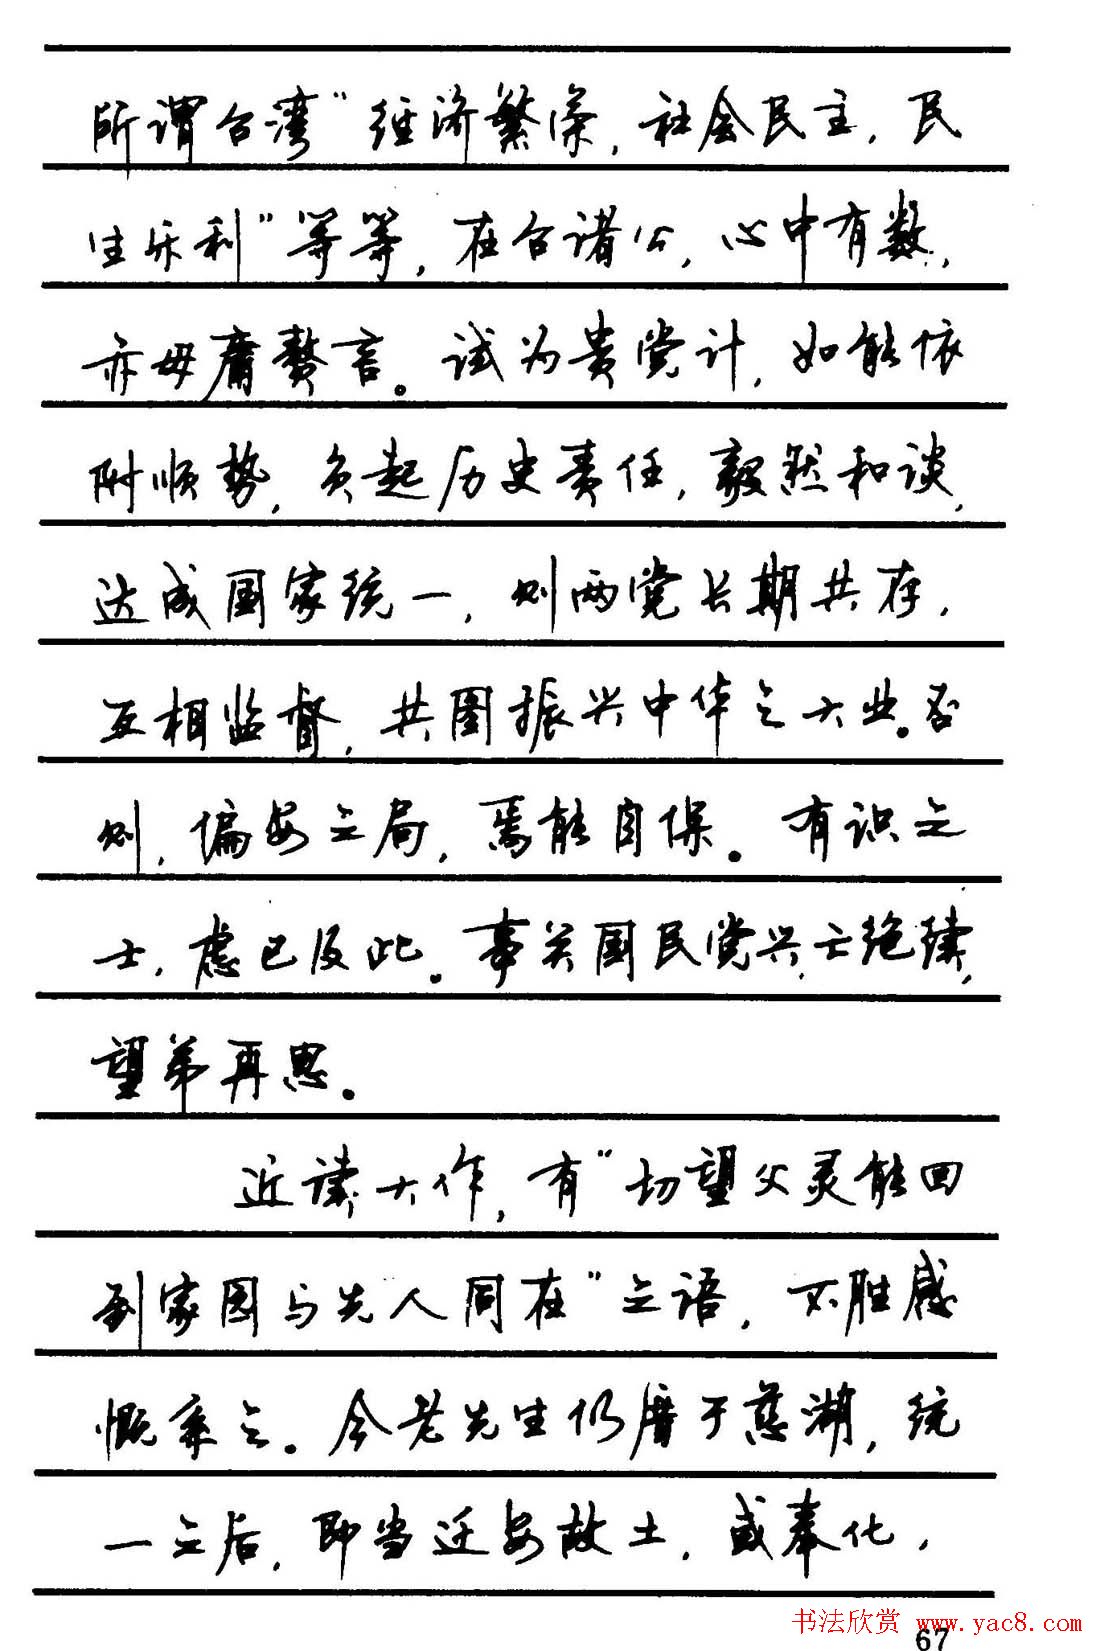 所谓台湾“经济繁荣,社会民主,民
生乐利”等等,在台诸公,心中有数,
亦毋庸赘言。试为贵党计,如能依
时顺势,负起历史责任,毅然和谈,
达成国家统一,则两党长期共存,
互相监督,共图振兴中华之大业。否
则,偏安之局,焉能自保。有识之
士,虑已及此。事关国民党兴亡绝续,
望弟再思。
近读大作,有“切望父灵能回
到家园与先人同在”之语,不胜感
慨系之。今老先生仍厝于慈湖,统
一之后,即当迁安故土,或奉化,
书法欣赏 www.yac8.com
67